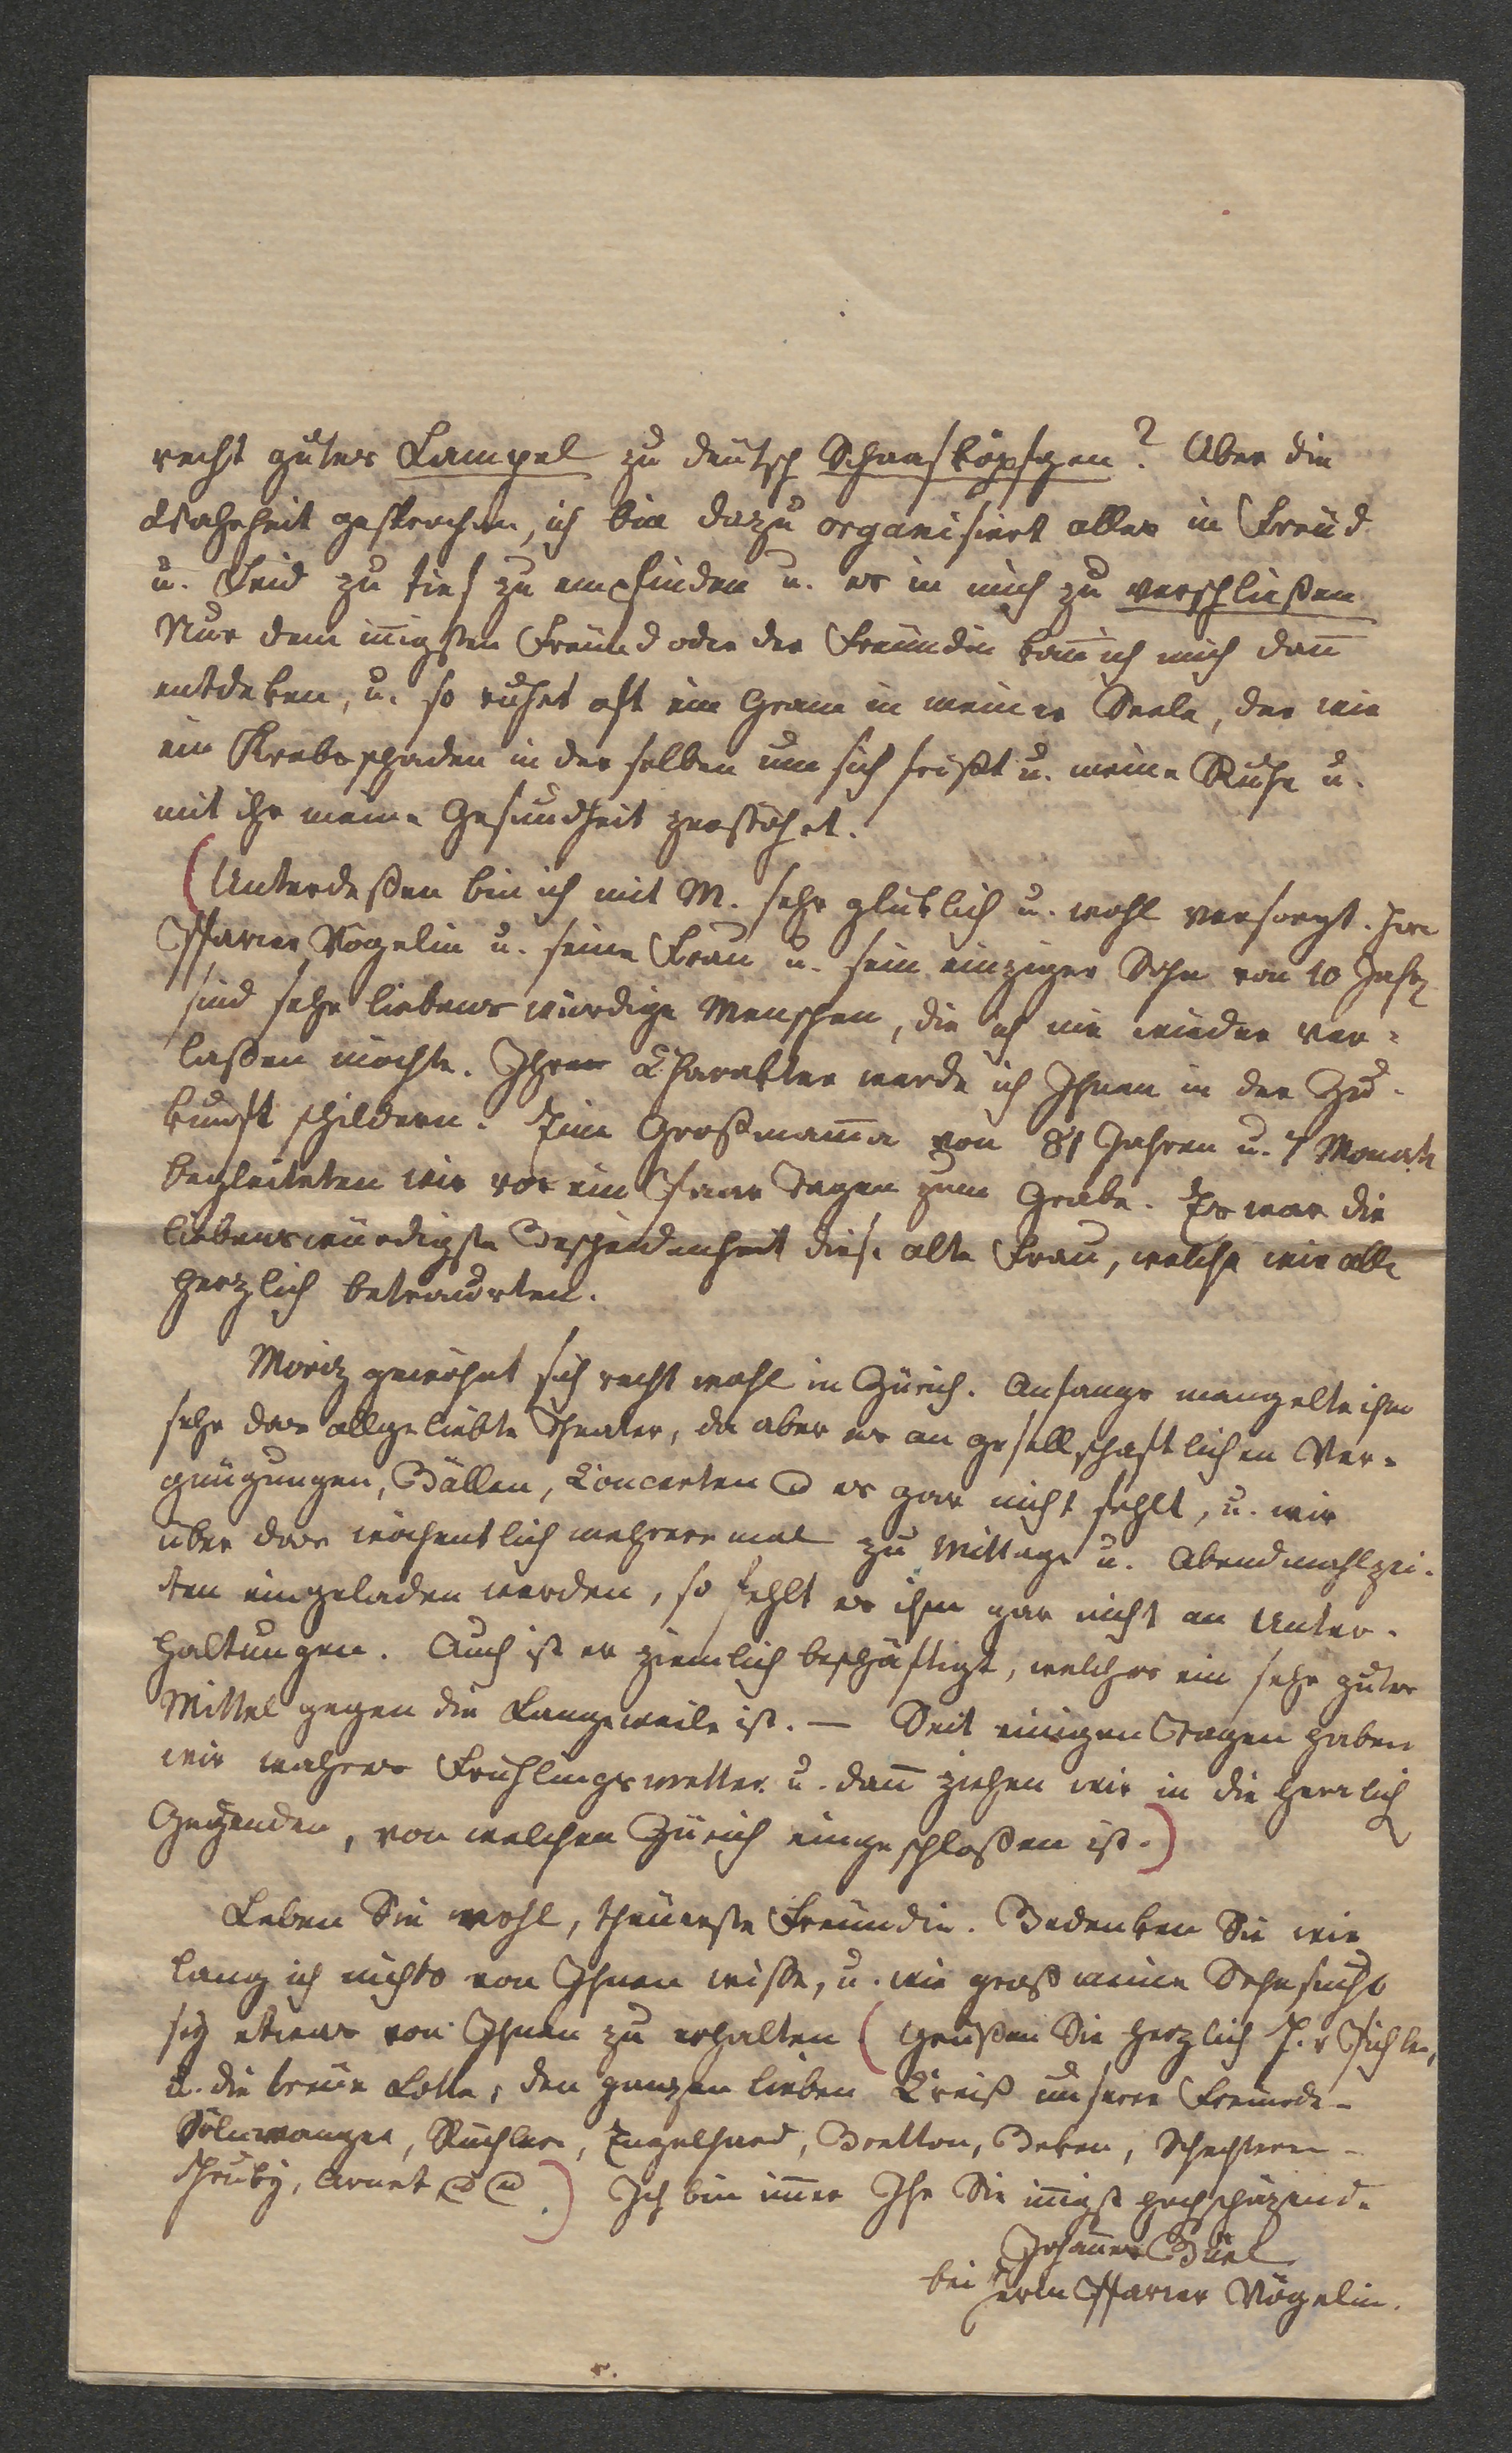 recht gutes Lampel zu deütsch Schaafsköpfgen? Aber die
Wahrheit gesprochen, ich bin dazu organisiert alles in Freüd
u. Leid zu tief zu empfinden u. es in mich zu verschließen
Nur dem iñigsten Freünd oder der Freündin kañ ich mich dañ
entdeken, u. so ruhet oft ein Gram in meiner Seele, der wie
ein Krebsschaden in derselben um sich frißt u. meine Ruhe u.
mit ihr meine Gesundheit zerstöhrt.
(Unterdeßen bin ich mit M. sehr glüklich u. wohl versorgt. Herr
Pfarrer Vögelin u. seine Frau u. sein einziger Sohn von 10 Jahr
sind sehr liebenswürdige Menschen, die ich nie wieder ver=
laßen möchte. Ihren Charakter werde ich Ihnen in der Zu-
kunft schildern. Eine Großmam̃a von 81 Jahren u. 7 Monate
begleiteten wir vor ein Paar Tagen zum Grabe. Es war die
liebenswürdigste Bescheidenheit diese alte Frau, welche wir alle
herzlich betraurten.
Moriz gewöhnt sich recht wohl in Zürich. Anfangs mangelte ihm
sehr das allgeliebte Theater, da aber es an gesellschaftlichen Ver-
gnügungen, Bällen, Concerten es gar nicht fehlt, u. wir
über das wöchentlich mehrere mal zu Mittags u. Abendmahlzei-
ten eingeladen werden, so fehlt es ihm gar nicht an Unter-
haltungen. Auch ist er ziemlich beschäftigt, welches ein sehr gutes
Mittel gegen die Langeweile ist. — Seit einigen Tagen haben
wir wahres Frühlingswetter u. dañ ziehen wir in die herrlich
Gegenden, von welchen Zürich eingeschloßen ist.)
Leben Sie wohl, theüerste Freündin. Bedenken Sie wie
lang ich nichts von Ihnen wisse, u. wie groß meine Sehnsucht
sey etwas von Ihnen zu erhalten (Grüßen Sie herzlich H. v Pichler,
u. die treüe Lotte, den ganzen lieben Kreiß unserer Freünde-
Büchler, Engelhard, Bretton, Beken,
Hruby, Arnet .) Ich bin im̃er Ihr Sie iñigst hochschäzend.
Johañes Büel
bei Herrn Pfarrer Vögelin.